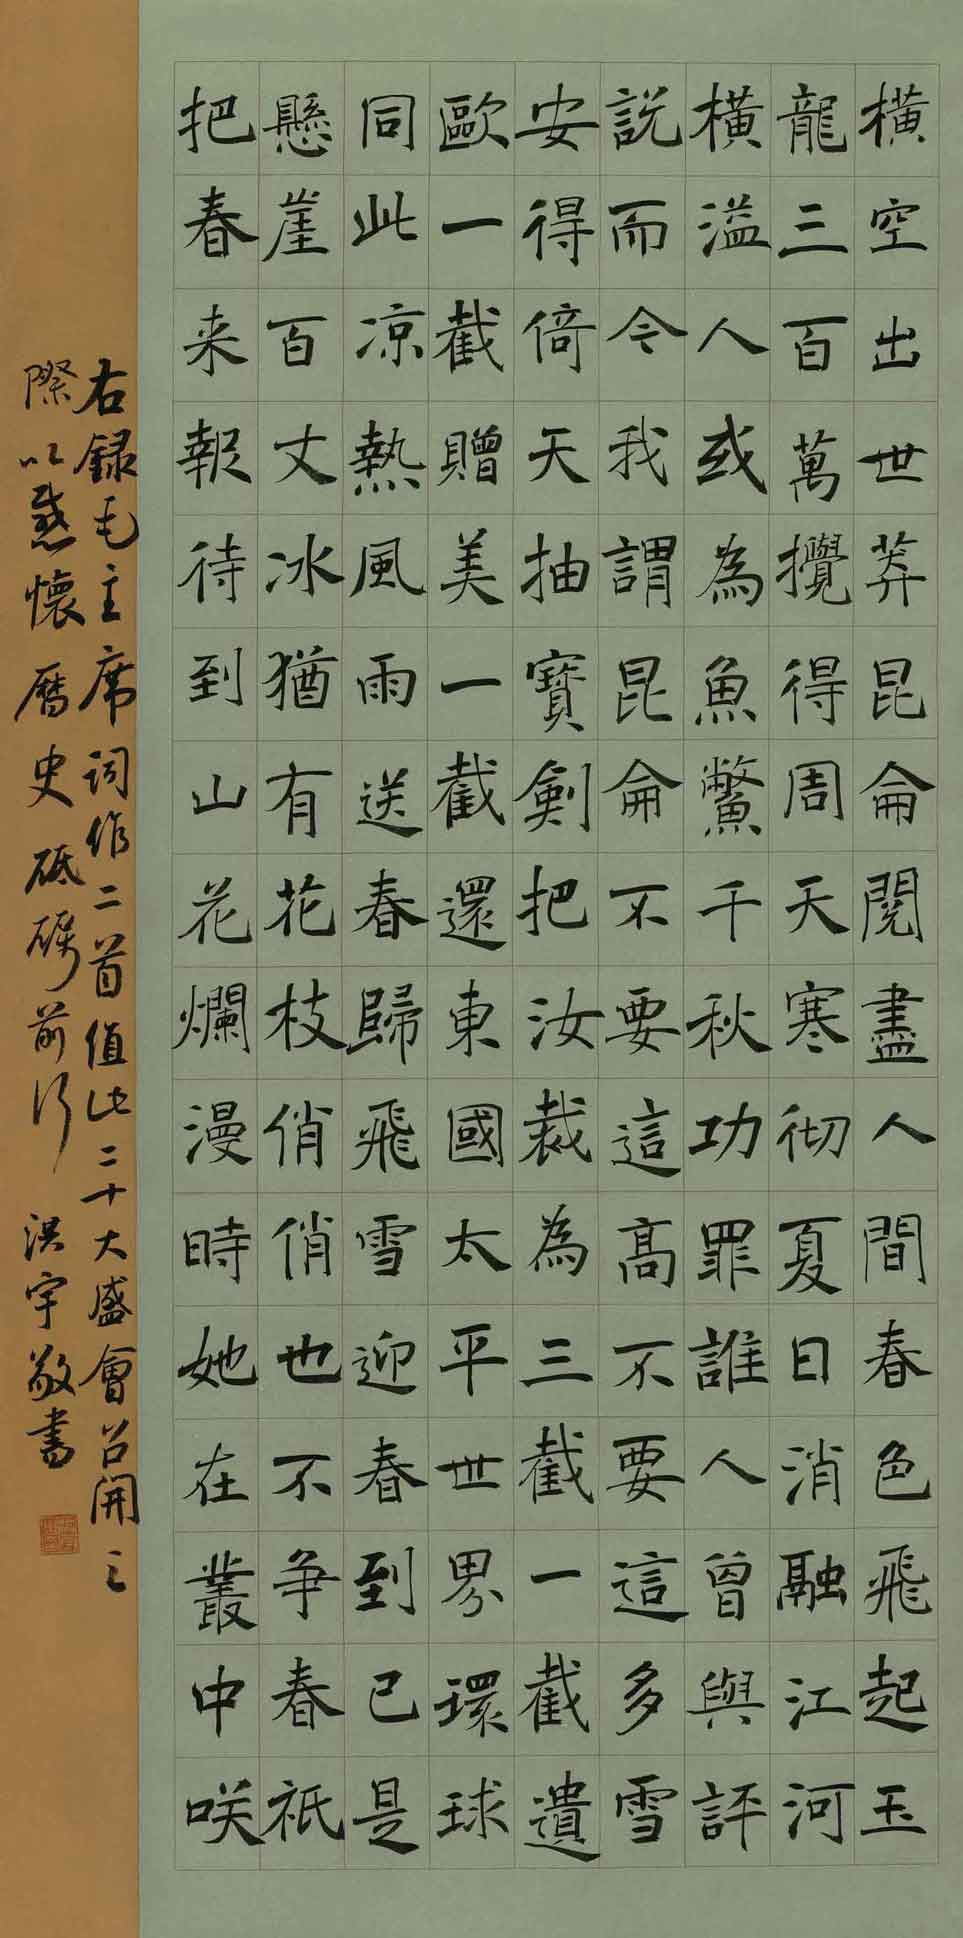 橫空出世莽昆侖閱盡人間春色飛起玉
龍三百萬攪得周天寒彻夏日消融江河
橫溢人或為魚鱉千秋功罪誰人曾與評
說而今我謂昆侖不要這高不要這多雪
安得倚天抽寶劍把汝裁為三截一截遺
歐一截贈美一截還東國太平世界環球
同此凉熱風雨送春歸飛雪迎春到已是
懸崖百丈冰猶有花枝俏俏也不争春祇
把春来報待到山花爛漫時她在叢中咲
右録毛主席词作二首值此二十大盛會召開之
際以感懷曆史砥礪前行 洪宇敬書